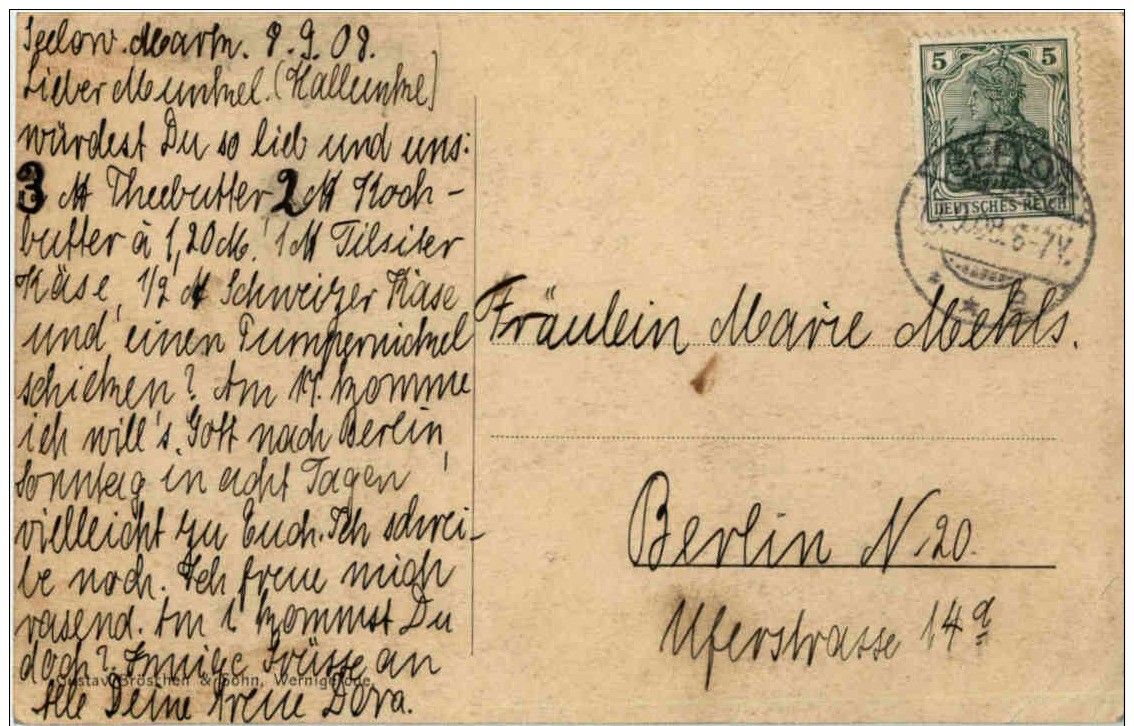 Seelow. Mark. 8.9.08.
Lieber Munkel. (Kallunkel)
würdest Du so lieb und uns:
3 ℔ Theebutter 2 ℔ Koch-
butter à 1,20 M. 1 ℔ Tilsiter
Käse, 1/2 ℔ Schweizer Käse
und einen Pumpernickel
schicken? Am 17. komme
ich will's Gott nach Berlin,
Sonntag in acht Tagen
vielleicht zu Euch. Ich schrei-
be noch. Ich freue mich
rasend. Am 1. kommst Du
doch? Innige Grüsse an
Alle Deine treue Dora.
Gustav Bröschen & Sohn, Wernigerode
5 5
DEUTSCHES REICH
SEELO
6-7V.
Fräulein Marie Mehls.
Berlin N.20.
Uferstrasse 14a